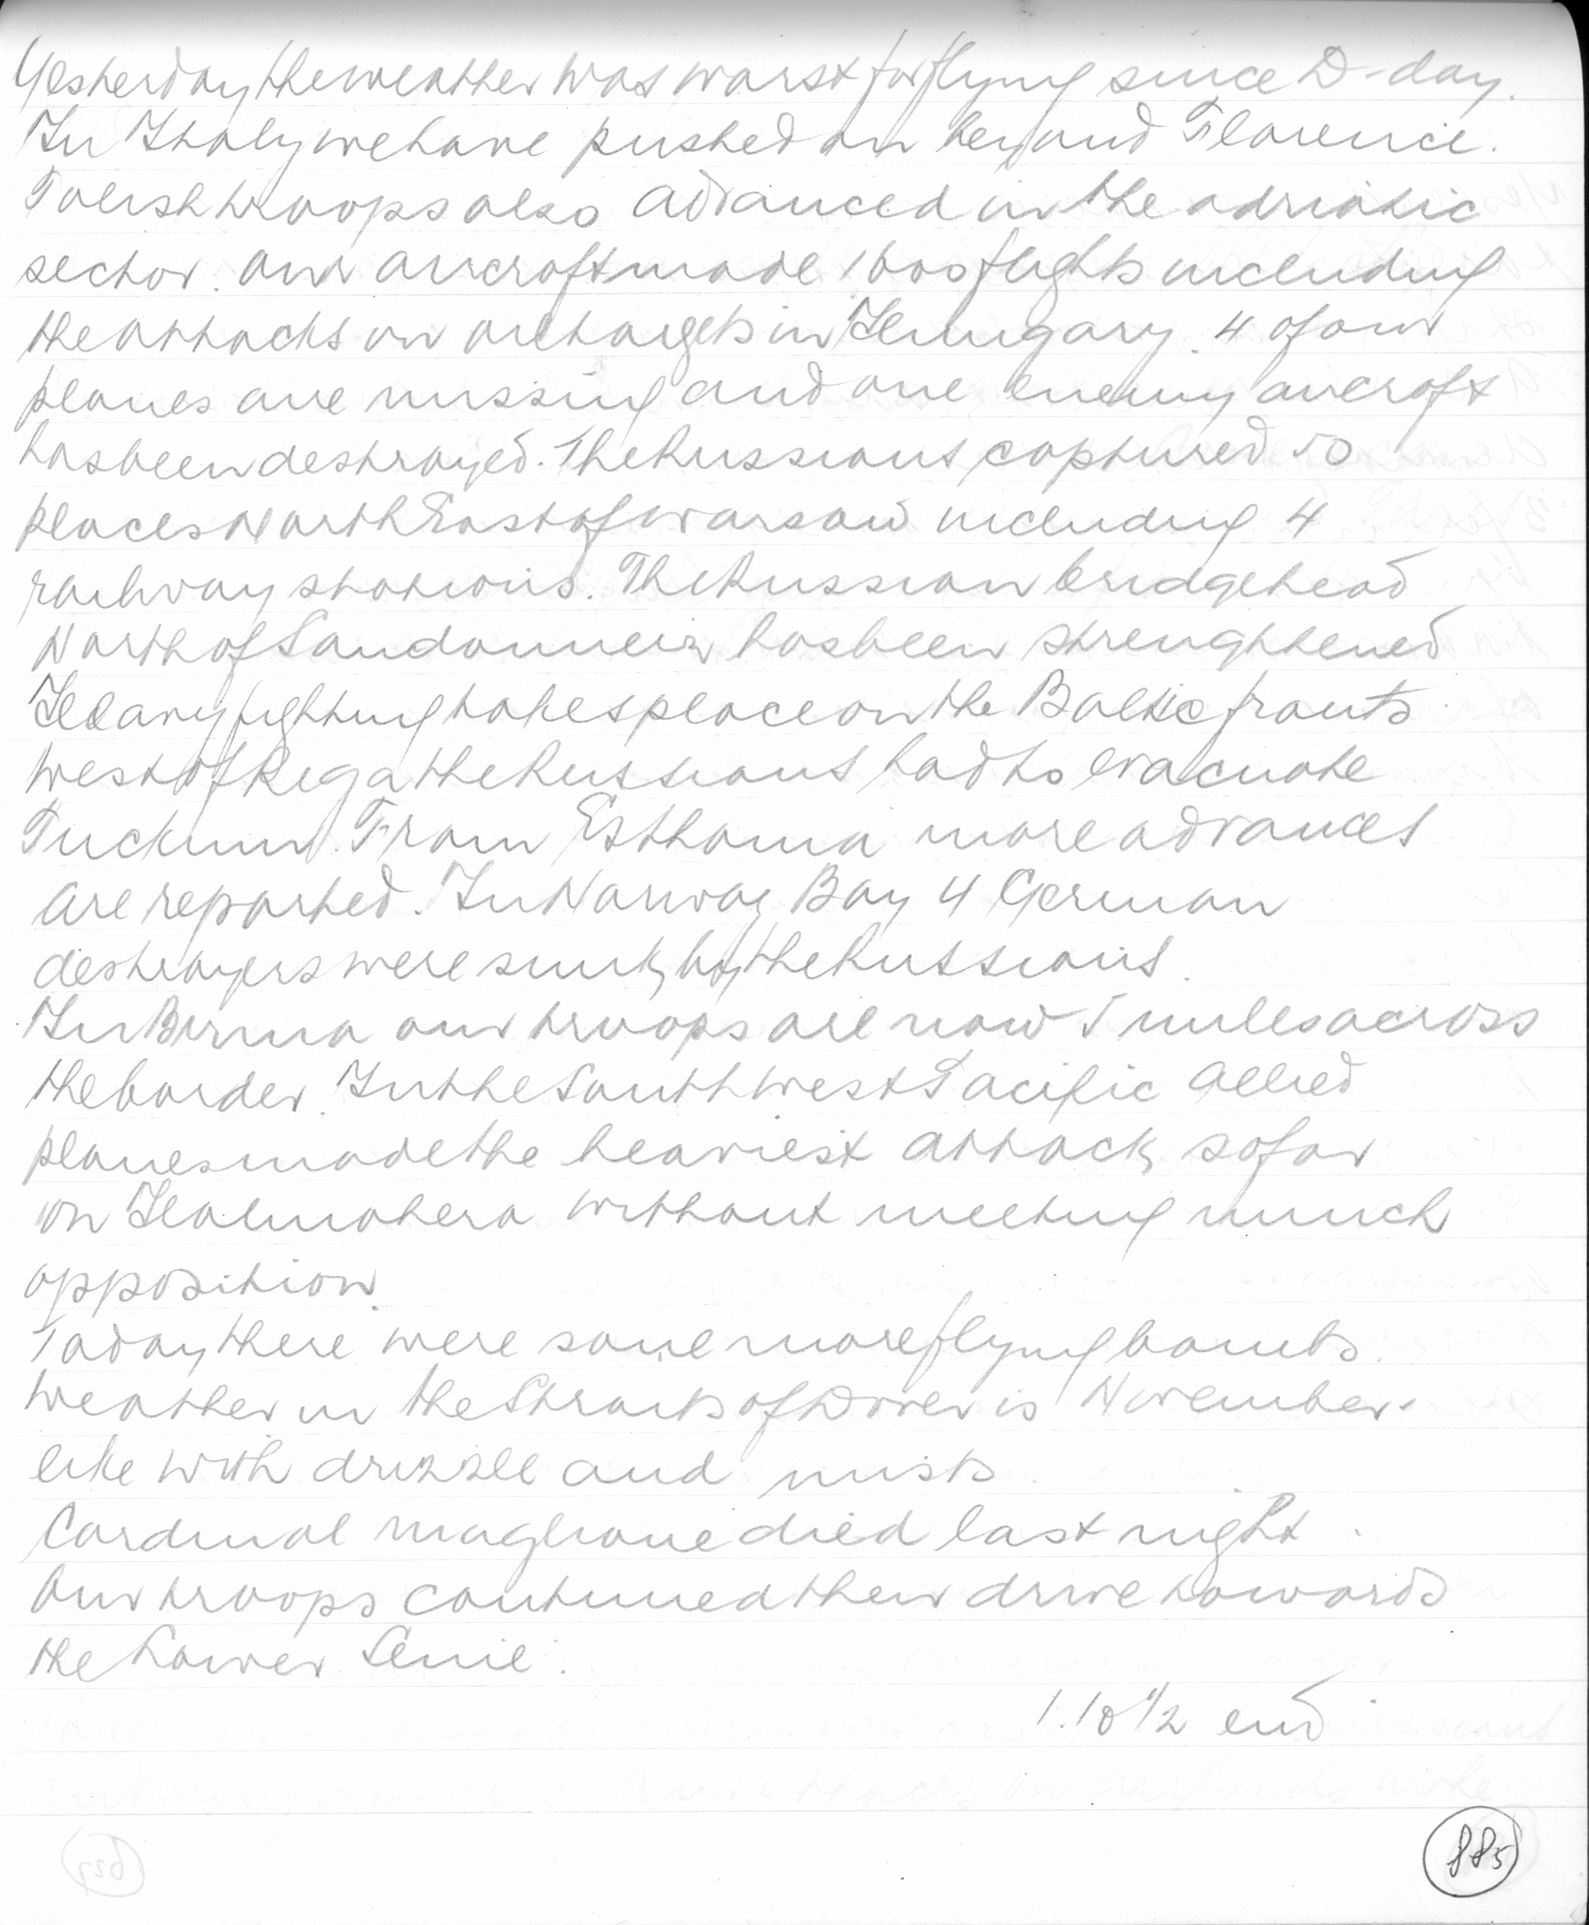 Yesterday the weather was worst for flying since D-day.
In Italy we have pushed on beyond Florence.
Polish troops also advanced in the adriatic
sector. Our aircraft made 1600 flights including
the attacks on oil targets in Hungary. 4 of our
planes are missing and one enemy aircraft
has been destroyed. The Russians captured 50
places North East of Warsaw including 4
railway stations. The Russian bridgehead
North of Sandomierz has been strenghtened
Heavy fighting takes place on the Baltic fronts.
West of Riga the Russians had to evacuate
Tuckum. From Esthonia more advances
are reported. In Narwa Bay 4 German
destroyers were sunk by the Russians.
In Birma our troops are now 5 miles across
the border. In the South West Pacific Allied
planes made the heaviest attack so far
on Halmahera without meeting much
opposition.
Today there were some more flying bombs.
Weather in the Straits of Dover is November-
like with drizzle and mists.
Cardinal Maglione died last night.
Our troops continued their drive towards
the Lower Seine.
1.10 1/2 end
885